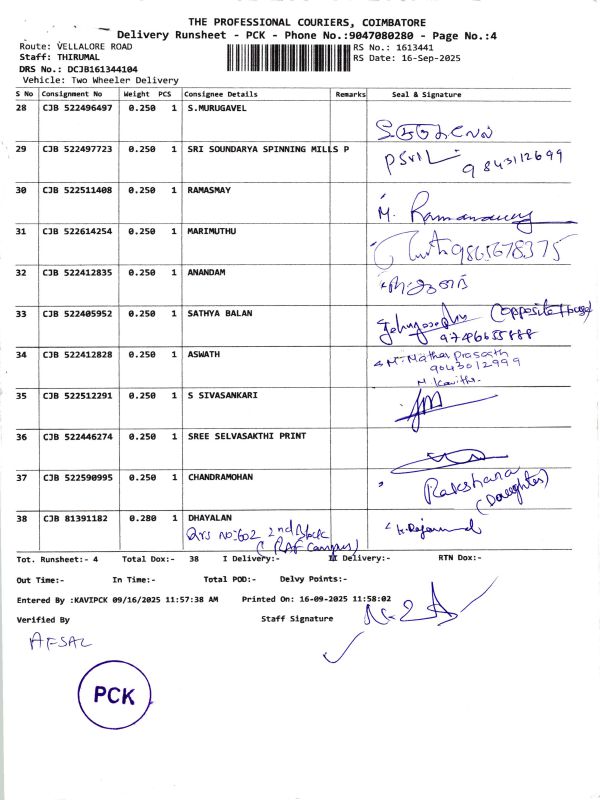 THE PROFESSIONAL COURIERS, COIMBATORE
Delivery Runsheet - PCK - Phone No.:9047080280 - Page No.:4
Route: VELLALORE ROAD RS No.: 1613441
Staff: THIRUMAL RS Date: 16-Sep-2025
DRS No.: DCJB161344104
Vehicle: Two Wheeler Delivery
S No Consignment No Weight PCS Consignee Details Remarks Seal & Signature
28 CJB 522496497 0.250 1 S.MURUGAVEL
29 CJB 522497723 0.250 1 SRI SOUNDARYA SPINNING MILLS P
PSVIL 9843112699
30 CJB 522511408 0.250 1 RAMASMAY
M.
31 CJB 522614254 0.250 1 MARIMUTHU
9865678375
32 CJB 522412835 0.250 1 ANANDAM
33 CJB 522405952 0.250 1 SATHYA BALAN
(opposite
34 CJB 522412828 0.250 1 ASWATH
9043012999
35 CJB 522512291 0.250 1 S SIVASANKARI
36 CJB 522446274 0.250 1 SREE SELVASAKTHI PRINT
37 CJB 522590995 0.250 1 CHANDRAMOHAN
Rakshana
(Daughter)
38 CJB 81391182 0.280 1 DHAYALAN
Qrs no:602 2nd Block
(RAF Campus)
Tot. Runsheet:- 4 Total Dox:- 38 I Delivery:- II Delivery:- RTN Dox:-
Out Time:- In Time:- Total POD:- Delvy Points:-
Entered By :KAVIPCK 09/16/2025 11:57:38 AM Printed On: 16-09-2025 11:58:02
Verified By Staff Signature
AFSAL
PCK